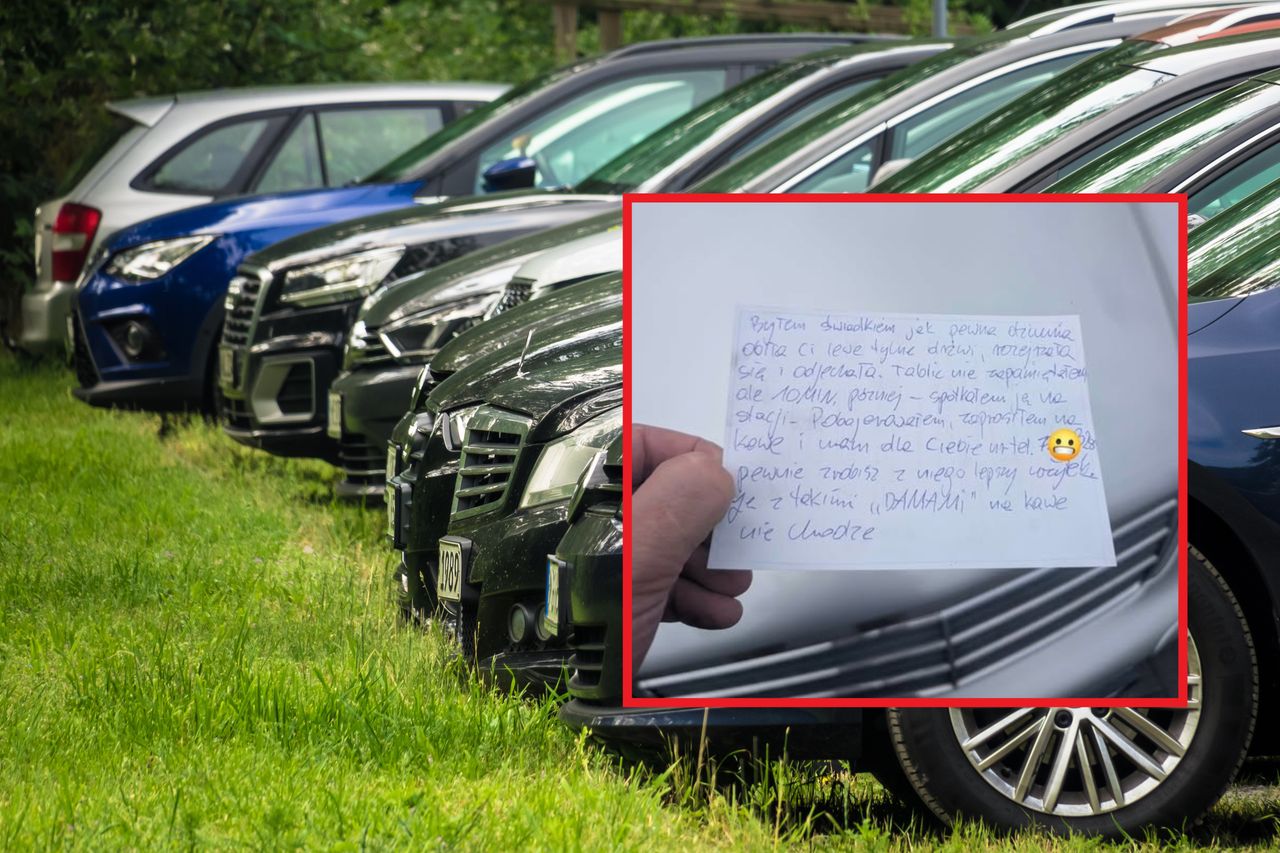 Byłem świadkiem jak pewna dziunia
obtła Ci lewe tylne drzwi, rozejrzała
się i odjechała. Tablic nie zapamiętałem
ale 10 MIN. później - spotkałem ją na
stacji - Pobajerowałem, zaprosiłem na
kawę i mam dla Ciebie nr tel.
pewnie zrobisz z niego lepszy użytek.
Ja z takimi „DAMAMI" na kawę
nie chodzę
1989